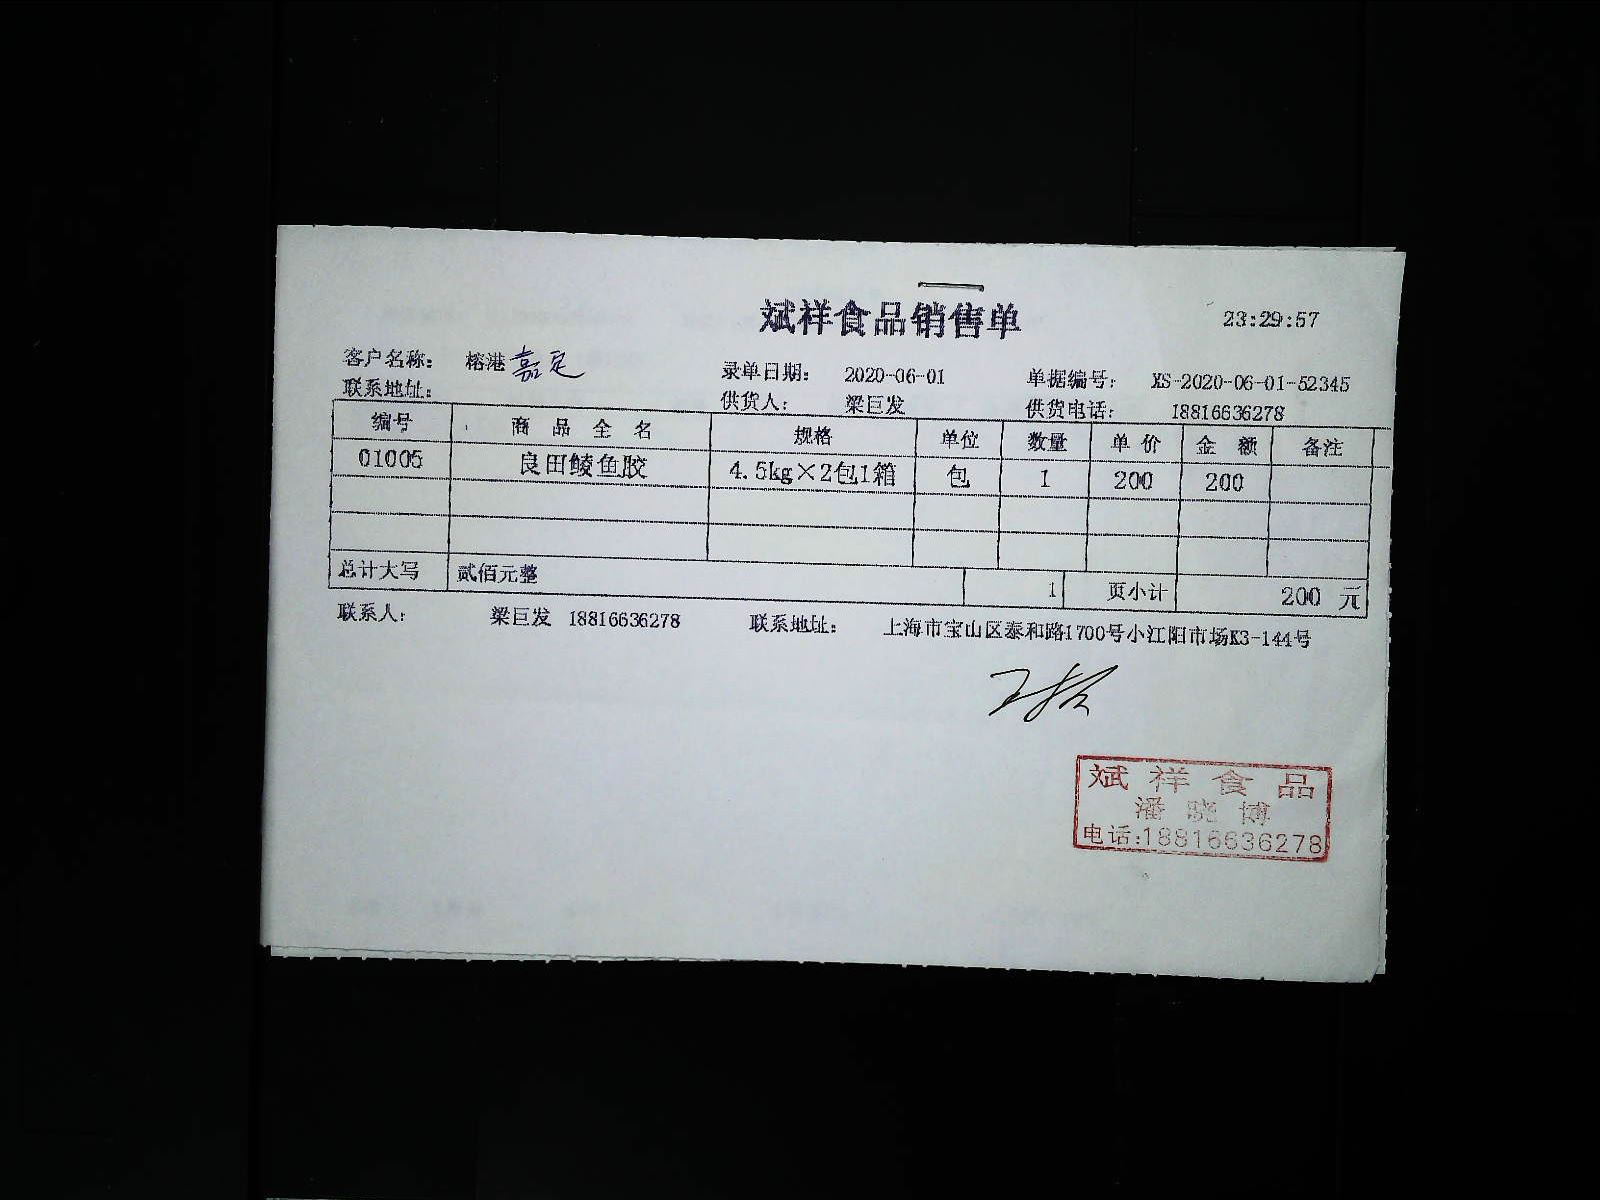 斌祥食品销售单 23:29:57
客户名称： 榕港 嘉定 录单日期： 2020-06-01 单据编号： XS-2020-06-01-52345
联系地址： 供货人： 梁巨发 供货电话： 18816636278
编号 商品全名 规格 单位 数量 单价 金额 备注
01005 良田鲮鱼胶 4.5kg×2包1箱 包 1 200 200
总计大写 贰佰元整 1 页小计 200 元
联系人： 梁巨发 18816636278 联系地址： 上海市宝山区泰和路1700号小江阳市场K3-144号
斌祥食品
潘晓博
电话:18816636278